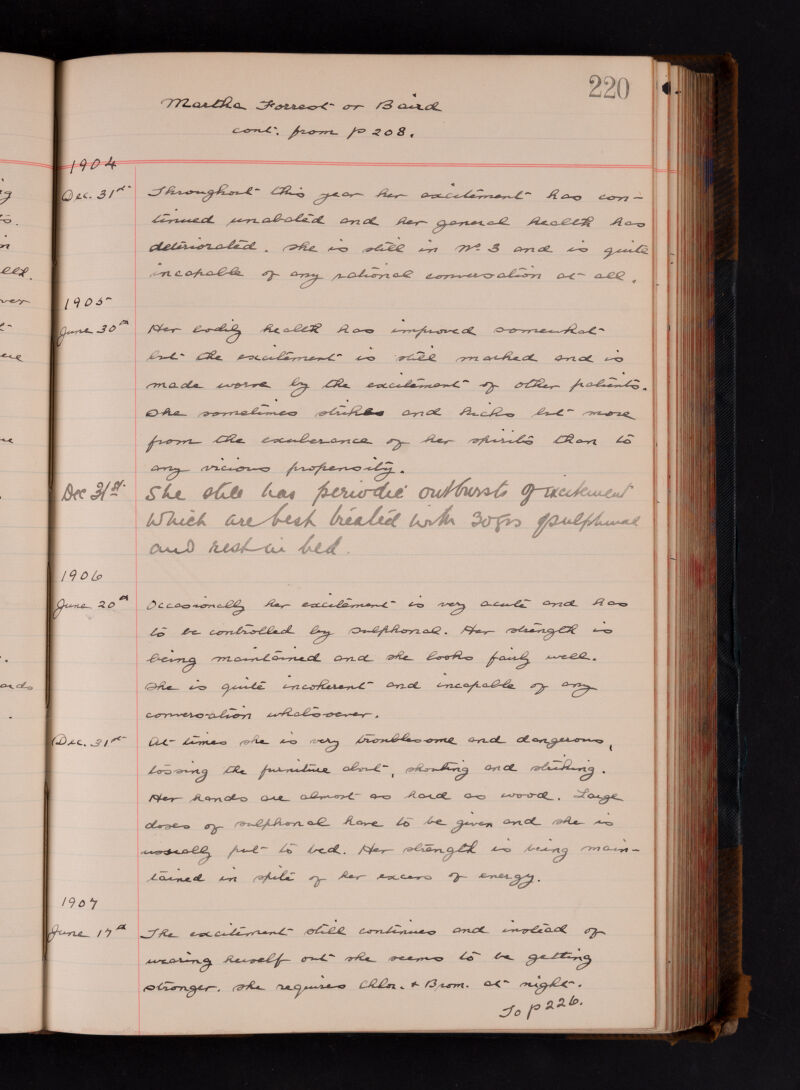 220
Martha Forrest or Baird
cont. from p 208.
1904
Dec. 31st Throughout this year her excitement has con-
tinued unabated and her general health has
deteriorated. She is still in No. 3 and is quite
incapable of any rational conversation at all.
1905
June 30th Her bodily health has improved somewhat
but the excitement is still marked and is
made worse by the excitement of other patients.
She sometimes strikes and kicks but more
from the exuberance of her spirits than to
any vicious propensity.
Dec 31st. She still has periodic outbursts of excitement
which are best treated with 30grs of sulphonal
and rest in bed.
1906
June 20th Occasionally her excitement is very acute and has
to be controlled by sulphonal. Her strength is
being maintained and she looks fairly well.
She is quite incoherent and incapable of any
conversation whatsoever.
Dec. 31st At times she is very troublesome and dangerous,
tossing the furniture about, shouting and striking.
Her hands are almost as hard as wood. Large
doses of sulphonal have to be given and she is
usually put to bed. Her strength is being main-
tained in spite of her excess of energy.
1907
June 17th The excitement still continues and instead of
wearing herself out she seems to be getting
stronger. She requires Chlor. & Brom. at night.
To p 226.